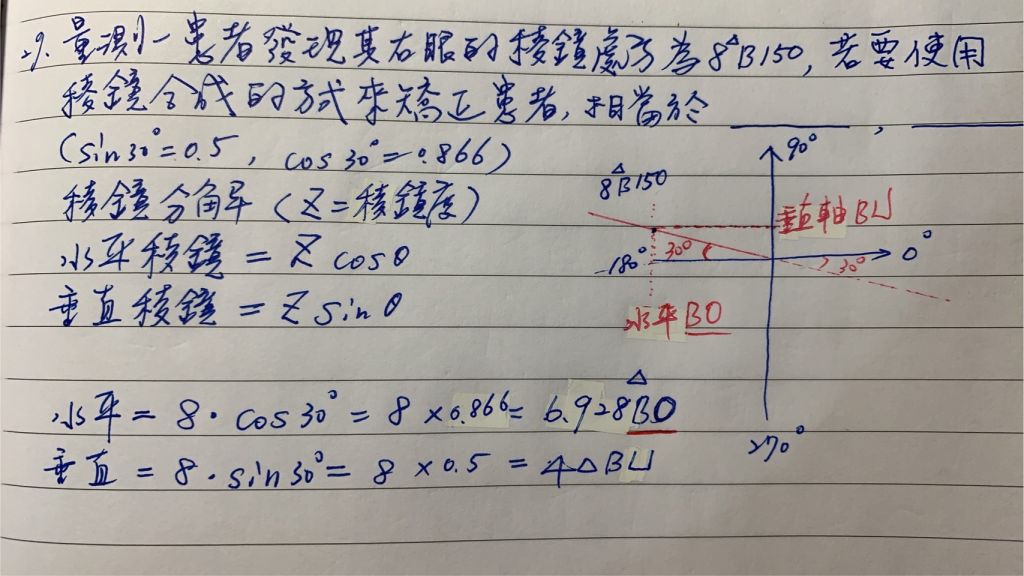 29. 量測一患者發現其右眼的稜鏡處方為8△B150, 若要使用
稜鏡合成的方式來矯正患者, 相當於 ______ , ______
(sin30°=0.5, cos30°=0.866)
稜鏡分解 (Z=稜鏡度)
水平稜鏡 = Z cosθ
垂直稜鏡 = Z sinθ
90°
8△B150
垂直軸BU
-180°
30°
0°
30°
水平BO
270°
水平 = 8·cos30° = 8×0.866 = 6.928△BO
垂直 = 8·sin30° = 8×0.5 = 4△BU